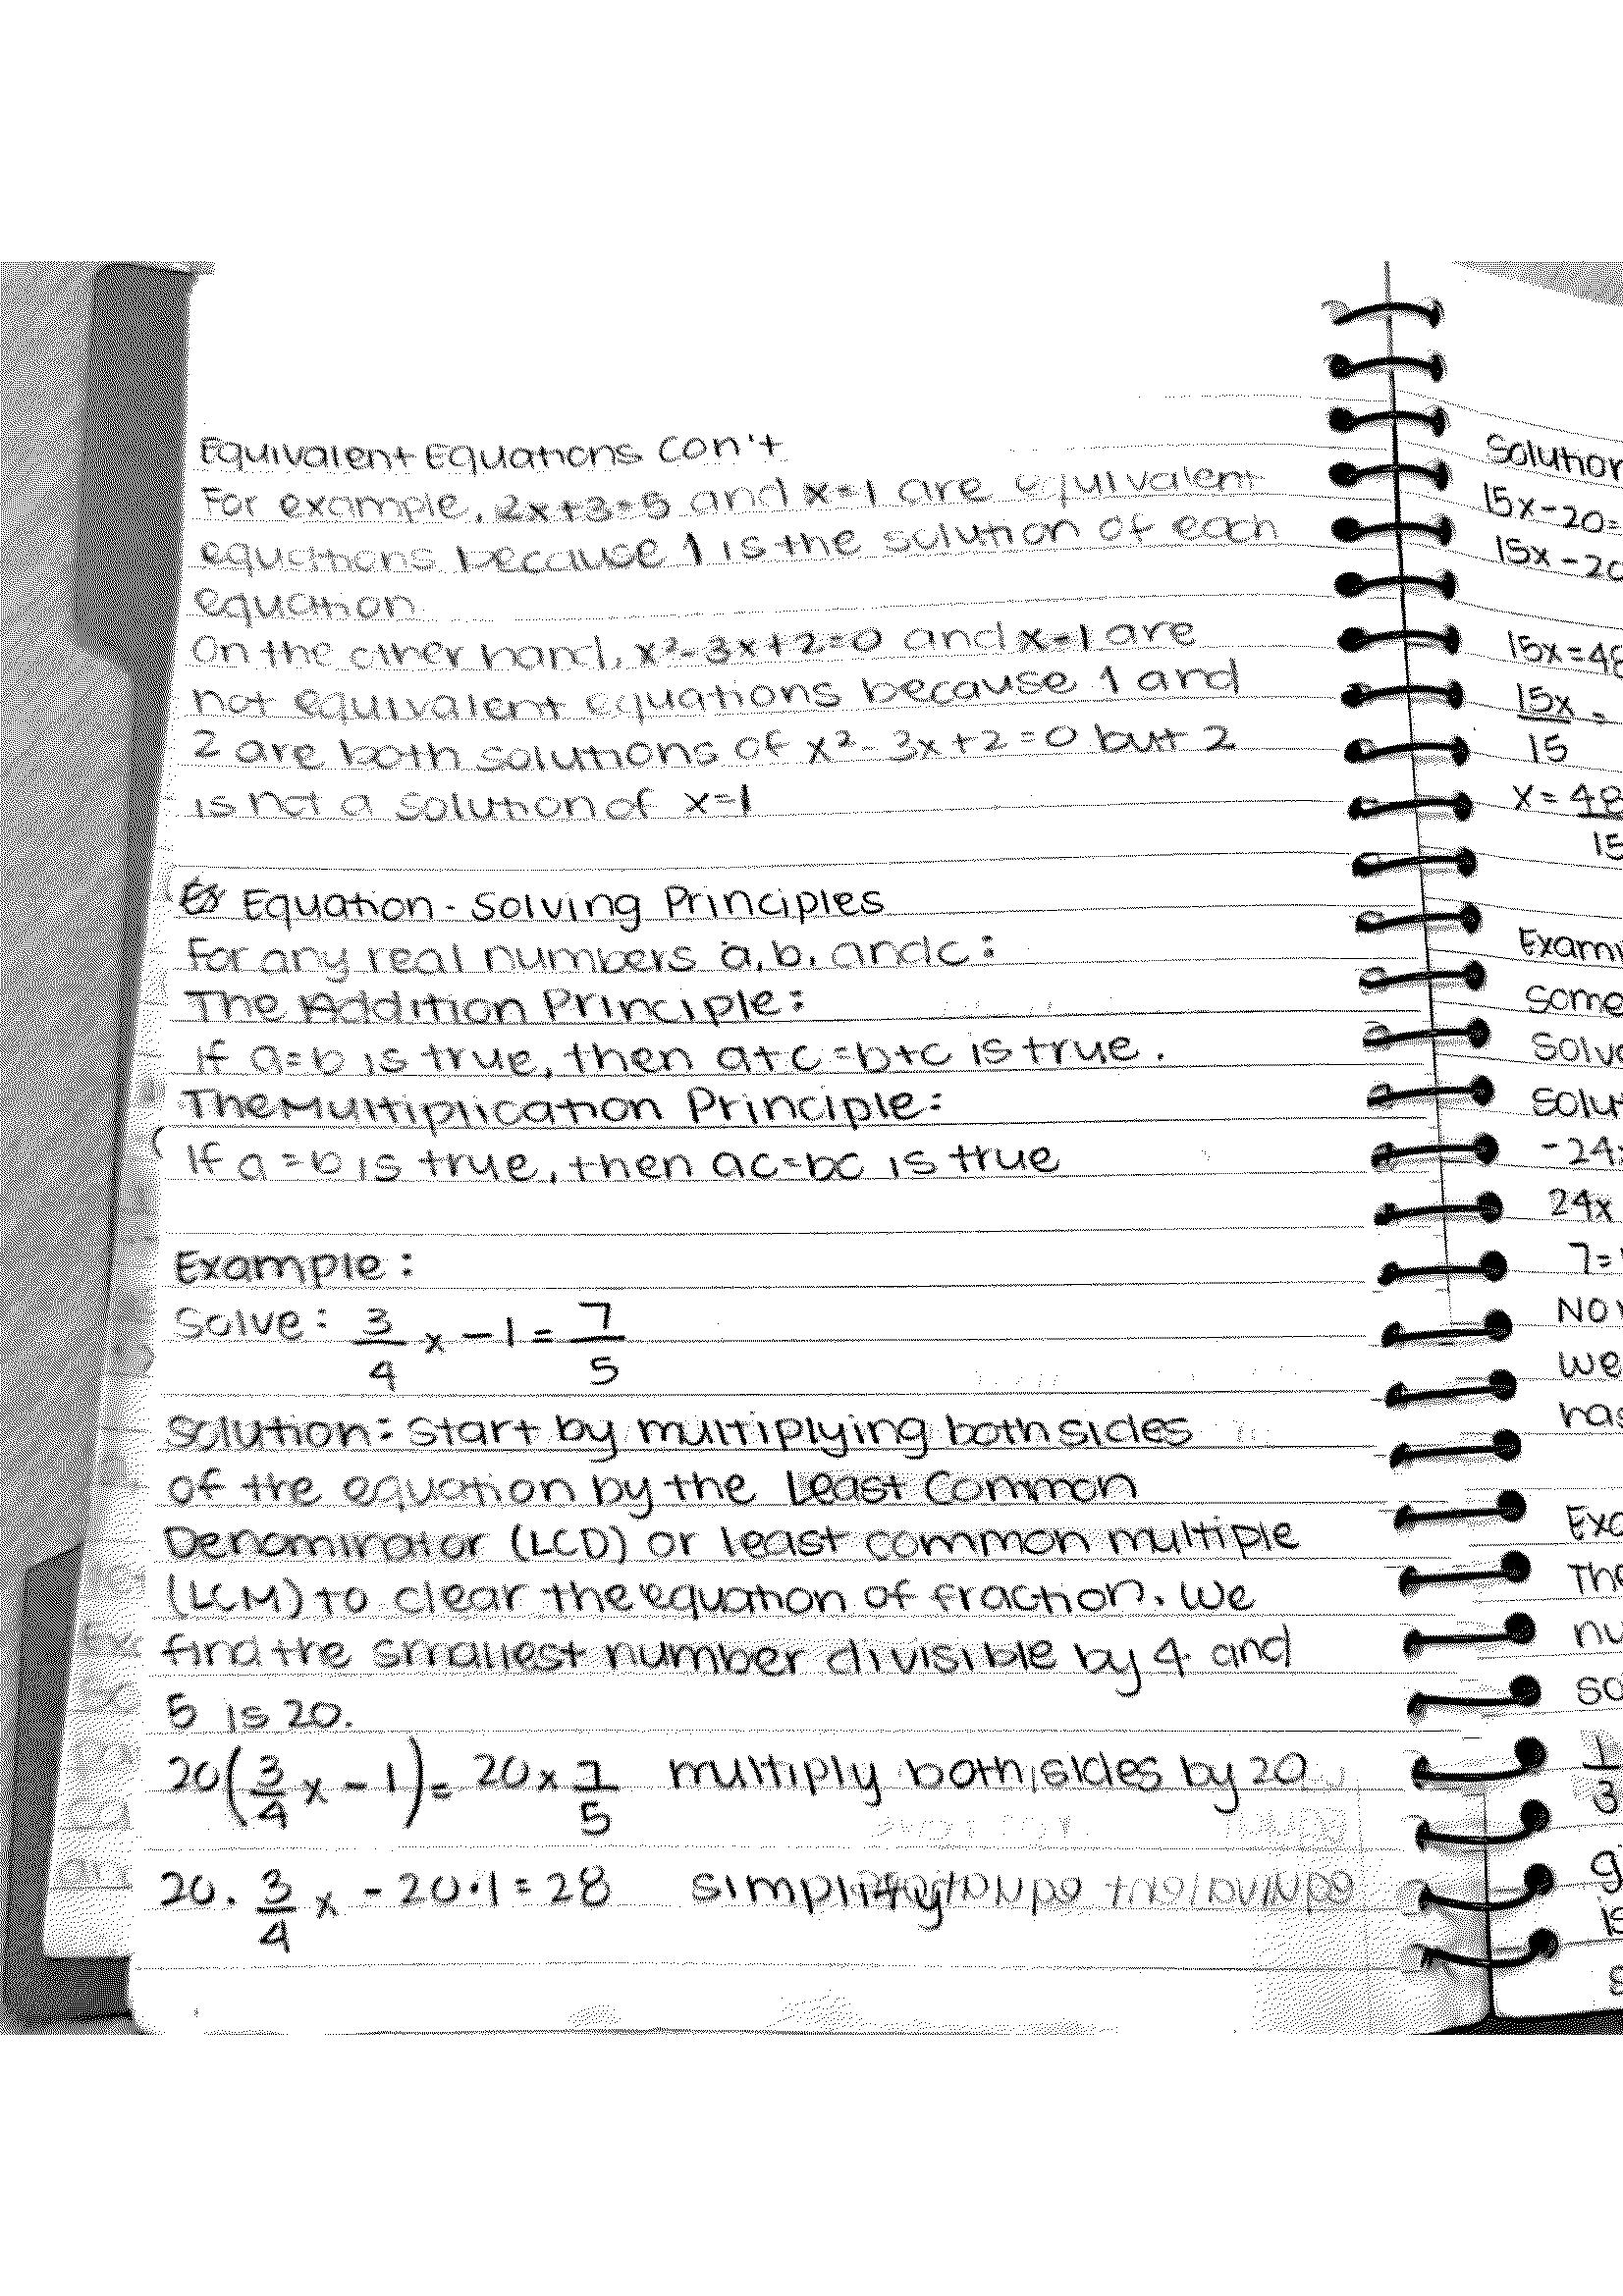 Equivalent Equations Con't
For example, 2x+3=5 and x=1 are equivalent
equations because 1 is the solution of each
equation
On the other hand, x²-3x+2=0 and x=1 are
not equivalent equations because 1 and
2 are both solutions of x²-3x+2=0 but 2
is not a solution of x=1
Equation-Solving Principles
For any real numbers a, b, and c:
The Addition Principle:
If a=b is true, then a+c=b+c is true.
The Multiplication Principle:
If a=b is true, then ac=bc is true
Example:
Solve: 3/4 x - 1 = 7/5
Solution: Start by multiplying both sides
of the equation by the Least Common
Denominator (LCD) or least common multiple
(LCM) to clear the equation of fraction. We
find the smallest number divisible by 4 and
5 is 20.
20(3/4 x - 1) = 20 x 7/5 multiply both sides by 20
20 . 3/4 x - 20·1 = 28 simplify
15x-20=
15x=48
15x/15 =
x = 48/15
Some
24x
7=
We
has
The
1/3